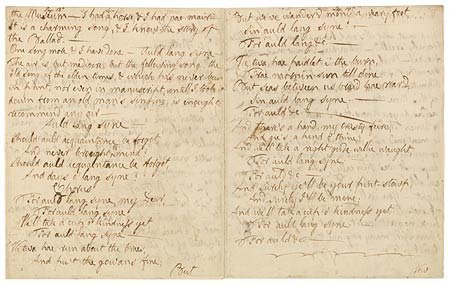 the Museum — I had a horse, & I had nae mair —
It is a charming song, & I know the story of
the Ballad.
One song more & I have done — Auld lang syne
The air is but mediocre; but the following song, the
old song of the olden times, & which has never been
in print, nor even in manuscript, untill I took it
down from an old man's singing, is enough to
recommend any air —
Auld lang syne —
Should auld acquaintance be forgot
And never brought to mind?
Should auld acquaintance be forgot
And days o' lang syne!
Chorus
For auld lang syne, my Dear,
For auld lang syne,
We'll tak a cup o' kindness yet
For auld lang syne
We twa hae run about the braes,
And pu't the gowans fine;
But
But we've wander'd mony a weary foot
Sin auld lang syne
For auld lang &c —
We twa hae paidl't i' the burn,
Frae mornin sun till dine
But seas between us braid hae roar'd
Sin auld lang syne
For auld &c —
And there's a hand, my trusty fiere
And gie's a hand o' thine
And we'll tak a right gude-willie waught
For auld lang syne
For auld &c
And surely ye'll be your pint-stowp
And surely I'll be mine;
And we'll tak a cup o' kindness yet
For auld lang syne!
For auld &c